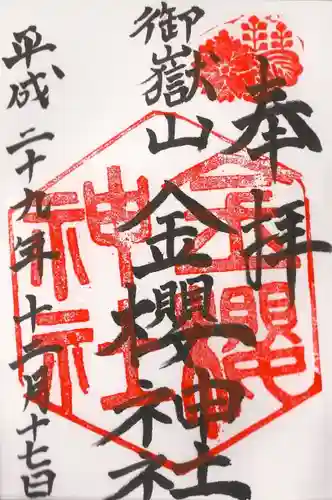 奉拝
御嶽山
金櫻神社
平成二十九年十一月十七日
金櫻神社